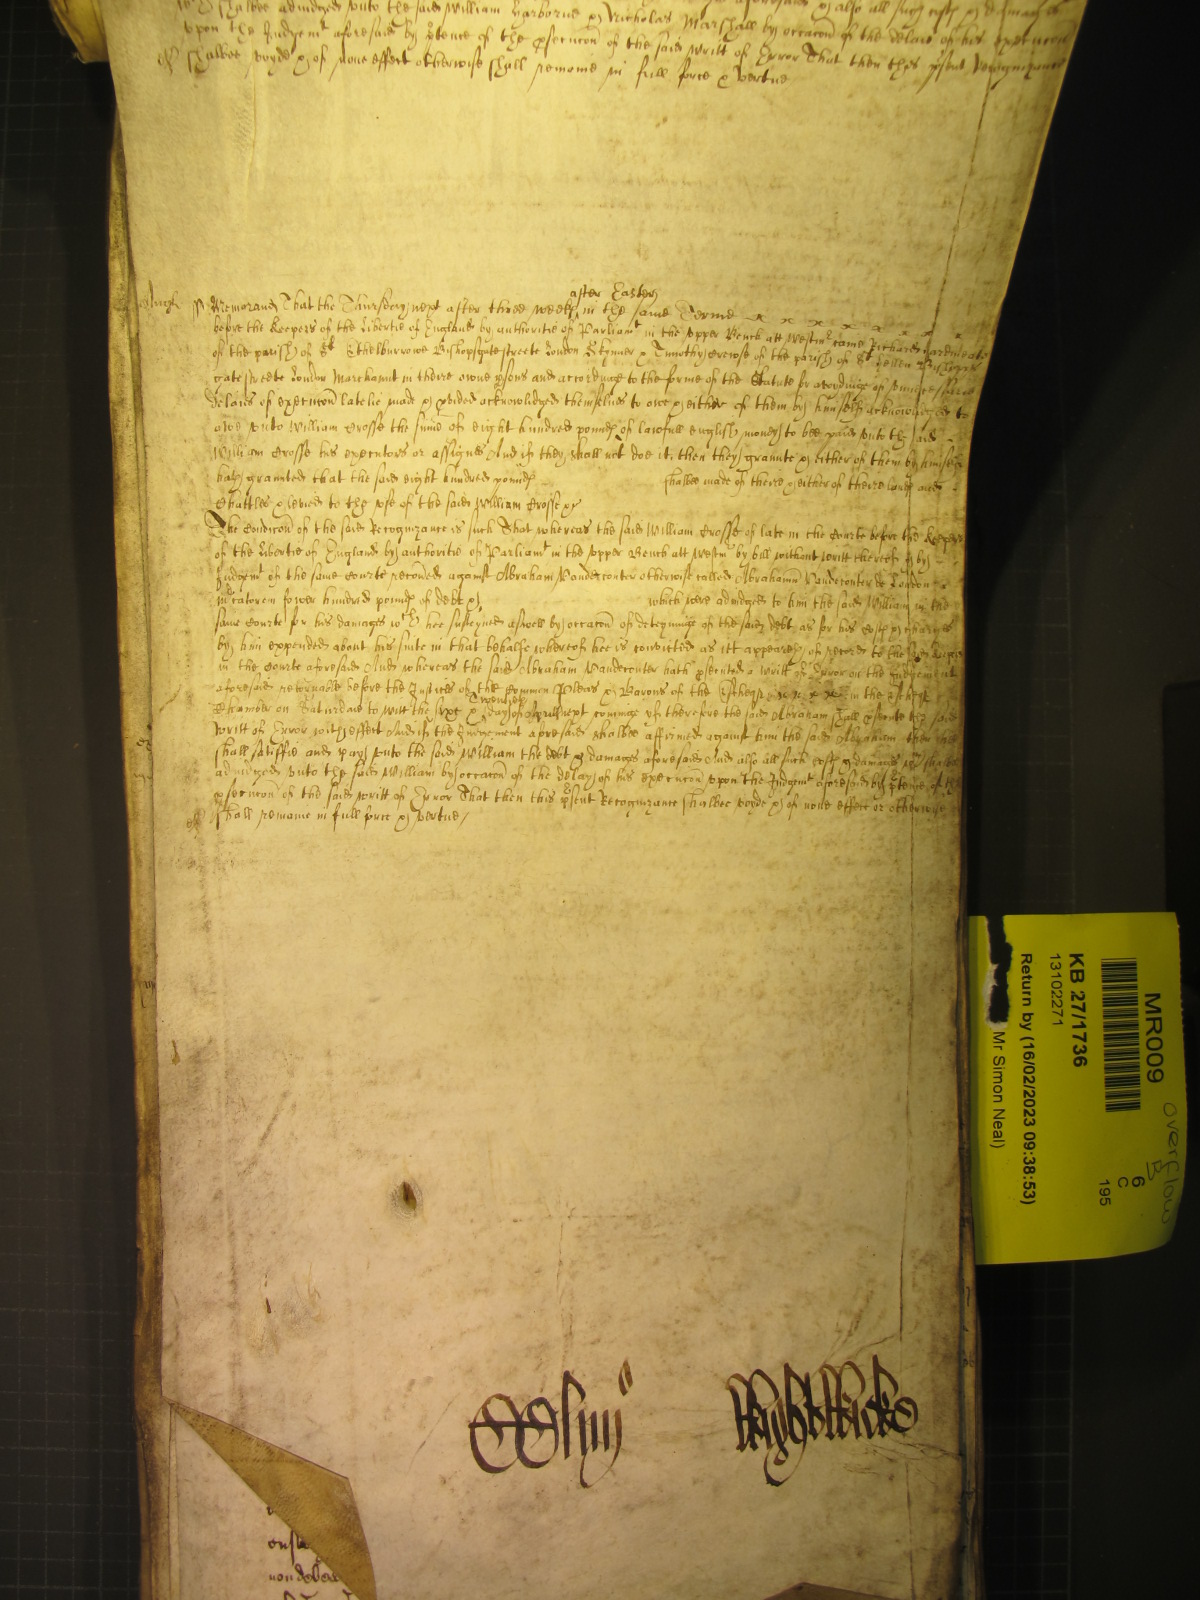 shalbee adiudged vnto the said William Harborne & Nicholas Marshall by occacon of the delaie of his execucon
vpon the Judgemt aforesaid by ptence of the psecucon of the said writt of Error That then this psent Recognizance
shalbee voyde & of none effect otherwise shall remaine in full force & vertue
after Easter
Memorand That the Thursday next after three weekes in the same Terme
before the keepers of the Libertie of England by authoritie of Parliamt in the vpper Bench att Westmr came Richard
of the parish of St Ethelburrowe Bishopsgate streete London Skynner & Timothy Crewse of the parish of St Hellen Bishopps
gate streete London Marchannt in theire owne psons and accordinge to the forme of the Statute for avoydinge of vnnecessarie
delaies of execucon latelie made & pvided acknowlidged themselues to owe & either of them by himself acknowlidged to
owe vnto William Crosse the sume of eight hundred pounds of lawfull english money to bee paid vnto the said
William Crosse his executors or assignes And if they shall not doe it then they graunte & either of them by himselfe
hath graunted that the said eight hundred pounds shalbee made of theire & either of theire lands and
Chattles & levied to the vse of the said William Crosse &c
The Condicon of the said Recognizance is such That whereas the said William Crosse of late in the Courte before the keepers
of the Libertie of England by authoritie of Parliamt in the vpper Bench att Westmr by bill without writt thereof & by
Judgemt of the same Courte recouered against Abraham Vandecouter otherwise called Abrahamu Vandecouter de London
mcatorem fower hundred pounds of debt & which were adiudged to him the said William in the
same Courte for his damages wch hee susteyned aswell by occacon of deteyninge of the said debt as for his costs & charges
by him expended about his suite in that behalfe whereof hee is convicted as itt appeareth of record to the
in the Courte aforesaid And whereas the said Abraham Vandecouter hath psecuted a writt of Error on the Judgement
aforesaid retournable before the Justices of the Common Pleas & Barons of the Exchequer in the Exchequer
Twentieth
Chamber on Saturdaie to witt the sixe & daie of Aprill next cominge yf therefore the said Abraham shall psecute the said
writt of Error with effect And if the Judgement aforesaid shalbee affirmed against him the said Abraham then hee
shall satisfie and pay vnto the said William the debt & damages aforesaid And also all such costs & damages as shalbee
adiudged vnto the said William by occacon of the delay of his execucon vpon the Judgemt aforesaid by ptence of the
psecucon of the said writt of Error That then this psent Recognizance shalbee voyde & of none effecte or otherwise
shall remaine in full force & vertue
Wightwicke
MR009
overflow
B
6
C
195
KB 27/1736
13102271
Return by (16/02/2023 09:38:53)
Mr Simon Neal)